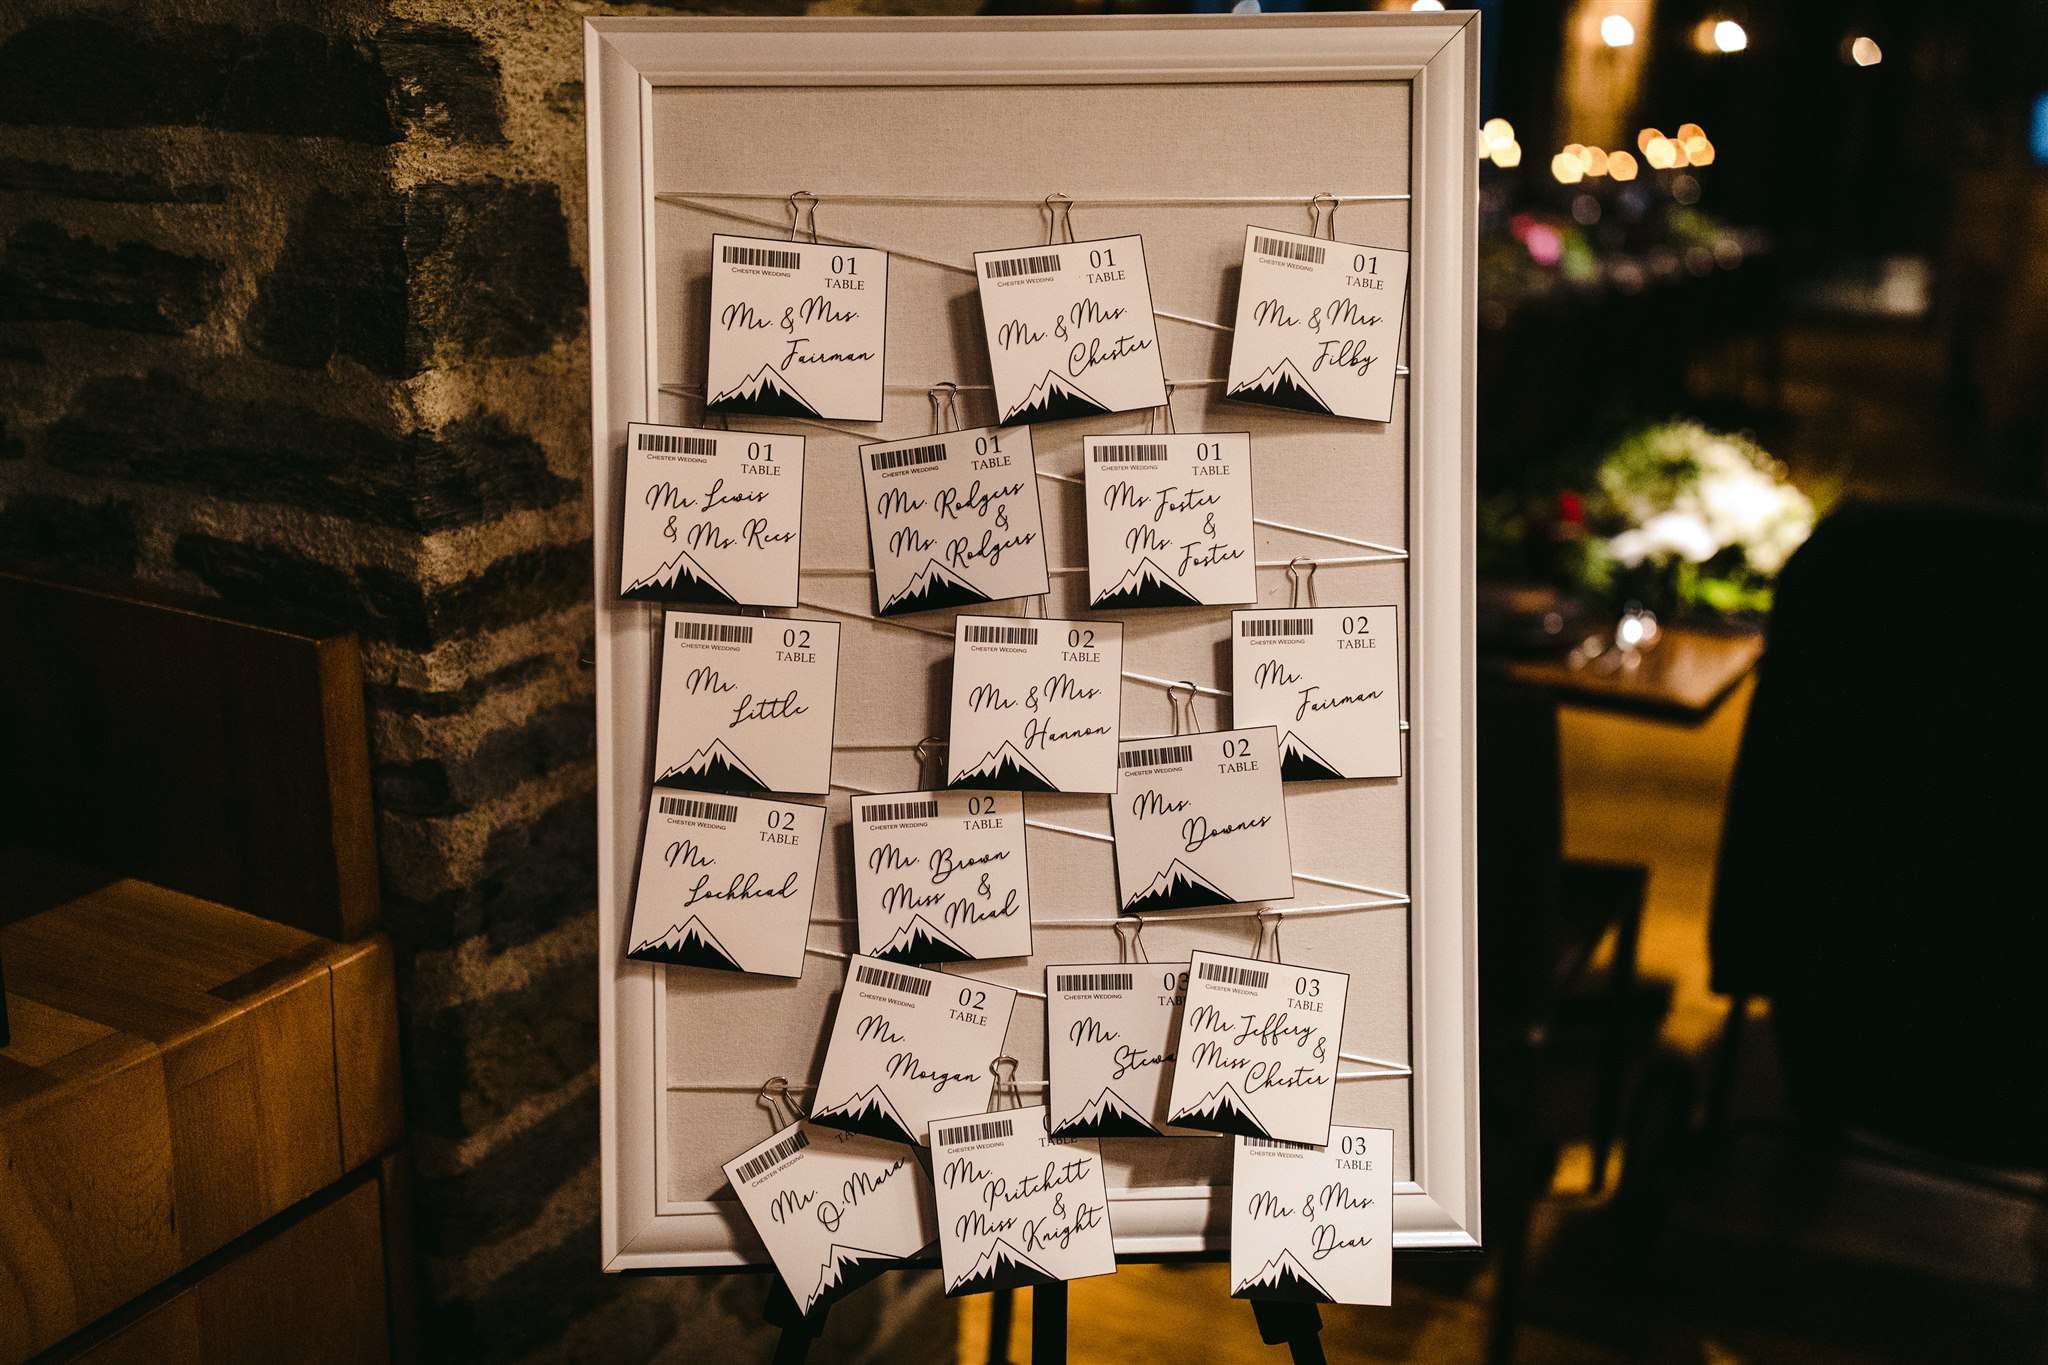 CHESTER WEDDING
01
TABLE
Mr. & Mrs.
Fairman
CHESTER WEDDING
01
TABLE
Mr. & Mrs.
Chester
CHESTER WEDDING
01
TABLE
Mr. & Mrs.
Filby
CHESTER WEDDING
01
TABLE
Mr. Lewis
& Ms. Rees
CHESTER WEDDING
01
TABLE
Mr. Rodgers
&
Ms. Rodgers
CHESTER WEDDING
01
TABLE
Ms. Foster
&
Ms. Foster
CHESTER WEDDING
02
TABLE
Mr.
Little
CHESTER WEDDING
02
TABLE
Mr. & Mrs.
Hannon
CHESTER WEDDING
02
TABLE
Mr.
Fairman
CHESTER WEDDING
02
TABLE
Mrs.
Downes
CHESTER WEDDING
02
TABLE
Mr.
Lochhead
CHESTER WEDDING
02
TABLE
Mr. Brown
&
Miss Mead
CHESTER WEDDING
02
TABLE
Mr.
Morgan
CHESTER WEDDING
03
Mr.
CHESTER WEDDING
03
TABLE
Mr. Jeffery
&
Miss Chester
CHESTER WEDDING
Mr.
O'Mara
CHESTER WEDDING
TABLE
Mr. Pritchett
&
Miss Knight
CHESTER WEDDING
03
TABLE
Mr. & Mrs.
Dear